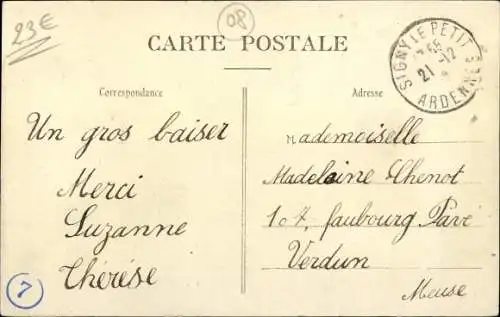 23€
08
CARTE POSTALE
SIGNY LE PETIT
21 -12
ARDENNES
Correspondance
Adresse
Un gros baiser
Merci
Suzanne
Thérése
Mademoiselle
Madeleine Thenot
107, faubourg Pavé
Verdun
Meuse
7